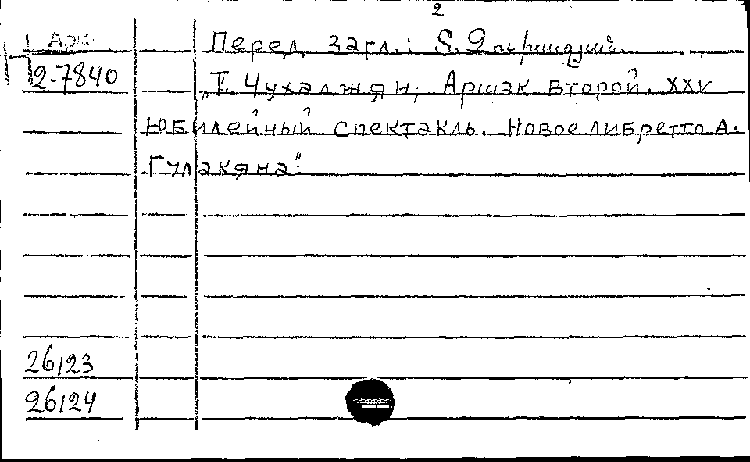 2
1 Арм
2-7840
Перед загл.: Տ.
"Т. Чухаджян, Аршак Второй. XXV
юбилейный спектакль. Новое либретто А.
Гулакяна"
26123
26124